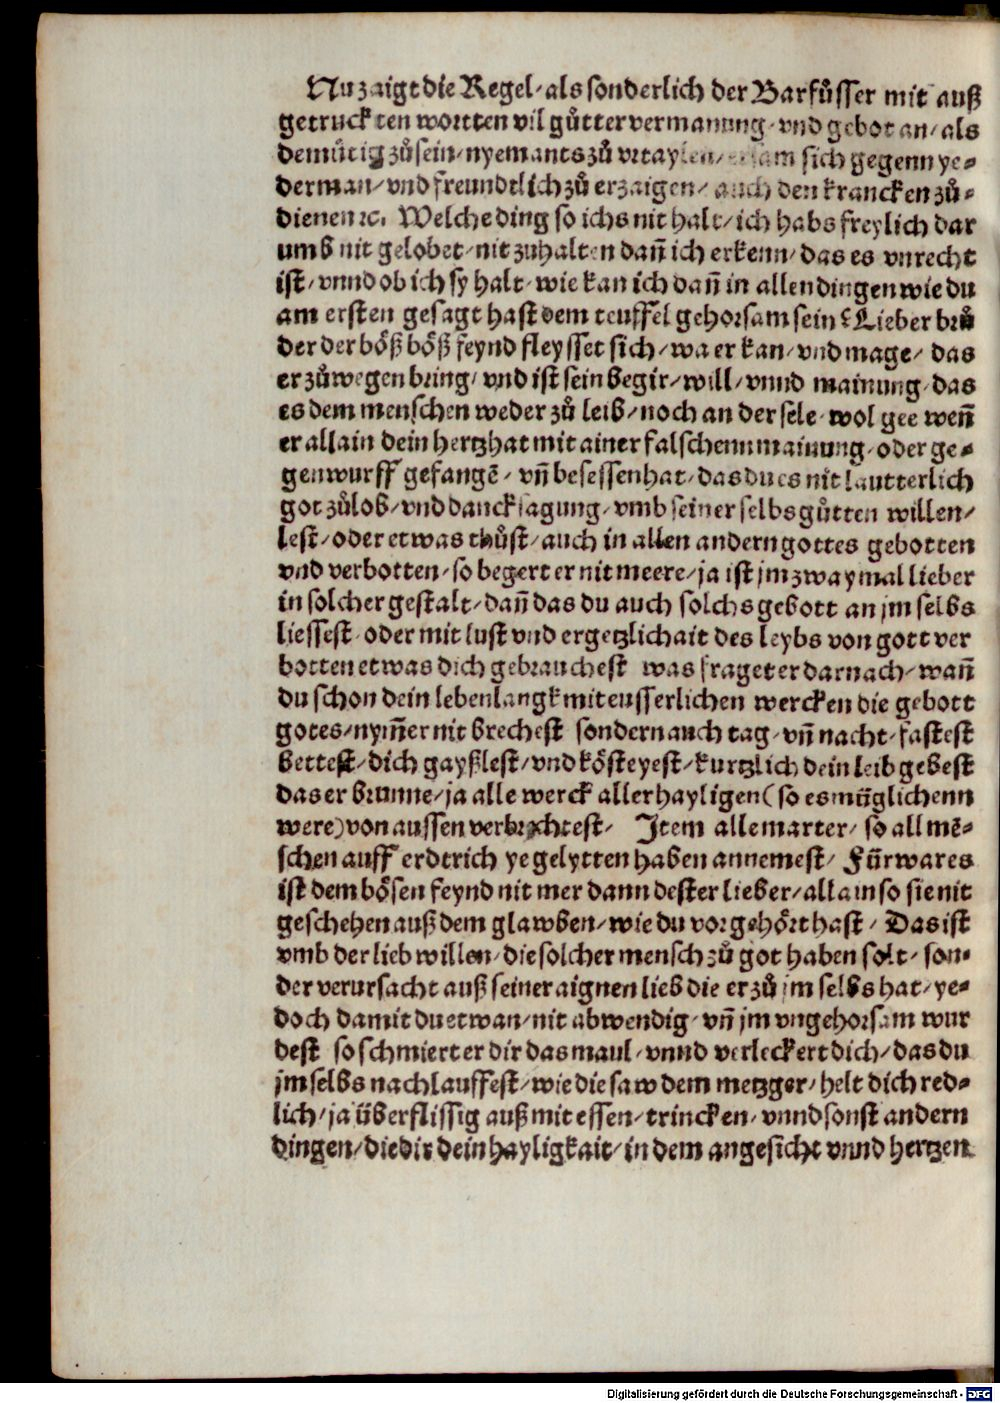 Nu zaigt die Regel/ als sonderlich der Barfůsser mit auß
getruckten wortten vil gůtter vermanung/ vnd gebot an/ als
demütig zů sein/ nyemants zů vrtaylen/ sich gegenn ye-
derman/ vnd freundtlich zů erzaigen/ auch den krancken zů-
dienen ⁊c. Welche ding so ichs nit halt/ ich habs freylich dar
umb nit gelobet/ nit zuhalten dañ ich erkenn/ das es vnrecht
ist/ vnnd ob ich sy halt/ wie kan ich dañ in allen dingen wie du
am ersten gesagt hast dem teuffel gehorsam sein? Lieber brů
der der böß böß feynd fleysset sich/ wa er kan/ vnd mage/ das
er zů wegen bring/ vnd ist sein begir/ will/ vnnd mainung/ das
es dem menschen weder zů leib/ noch an der sele/ wol gee weñ
er allain dein hertz hat mit ainer falschenn mainung/ oder ge-
genwurff gefangē/ vñ besessen hat/ das du es nit lautterlich
got zů lob/ vnd dancksagung/ vmb seiner selbs gůtten willen/
lest/ oder etwas thůst/ auch in allen andern gottes gebotten
vnd verbotten/ so begert er nit meere/ ja ist jm zwaymal lieber
in solcher gestalt/ dañ das du auch solchs gebott an jm selbs
liessest/ oder mit lust vnd ergetzlichait des leybs von gott ver
botten etwas dich gebrauchest was fraget er darnach/ wañ
du schon dein lebenlangk mit eusserlichen wercken die gebott
gotes/ nym̃er nit brechest sondern auch tag/ vñ nacht/ fastest
bettest/ dich gayßlest/ vnd kösteyest/ kurtzlich dein leib gebest
das er brunne/ ja alle werck aller hayligen (so es müglichenn
were) von aussen verbrechtest/ Item alle marter/ so all mē-
schen auff erdtrich ye gelytten haben annemest/ Fürwar es
ist dem bösen feynd nit mer dann dester lieber/ allain so sie nit
geschehen auß dem glawben/ wie du vor gehört hast/ Das ist
vmb der lieb willen/ die solcher mensch zů got haben solt/ son-
der verursacht auß seiner aignen lieb die er zů jm selbs hat/ ye-
doch damit du etwan/ nit abwendig/ vñ jm vngehorsam wur
dest so schmiert er dir das maul/ vnnd verleckert dich/ das du
jm selbs nachlauffest/ wie die saw dem metzger/ helt dich red-
lich/ ja überflissig auß mit essen/ trincken/ vnnd sonst andern
dingen/ die dir dein hayligkait/ in dem angesicht vnnd hertzen
Digitalisierung gefördert durch die Deutsche Forschungsgemeinschaft - DFG